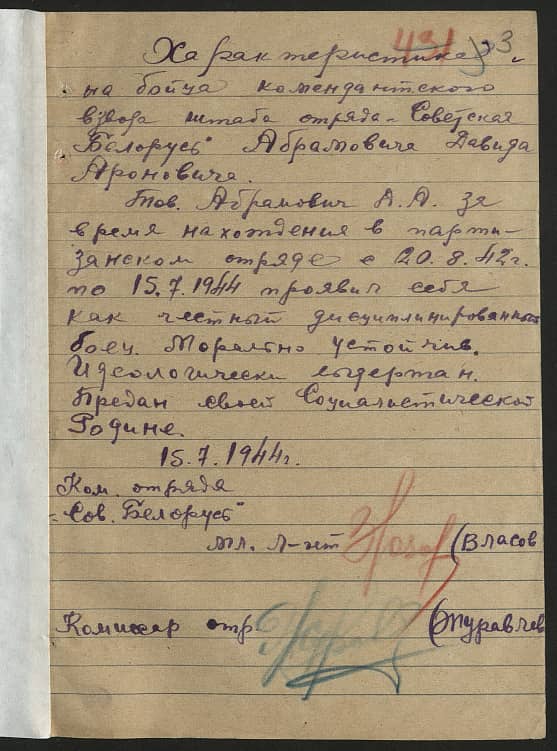 431 33
Характеристика
на бойца комендантского
взвода штаба отряда „Советская
Белорусь" Абрамовича Давида
Ароновича.
Тов. Абрамович Д. А. за
время нахождения в парти-
занском отряде с 20.8.42г.
по 15.7.1944 проявил себя
как честный дисциплинированный
боец. Морально устойчив.
Идеологически выдержан.
Предан своей Социалистической
Родине.
15.7.1944г.
Ком. отряда
„Сов. Белорусь"
мл. л-нт (Власов
Комиссар отр. (Журавлев